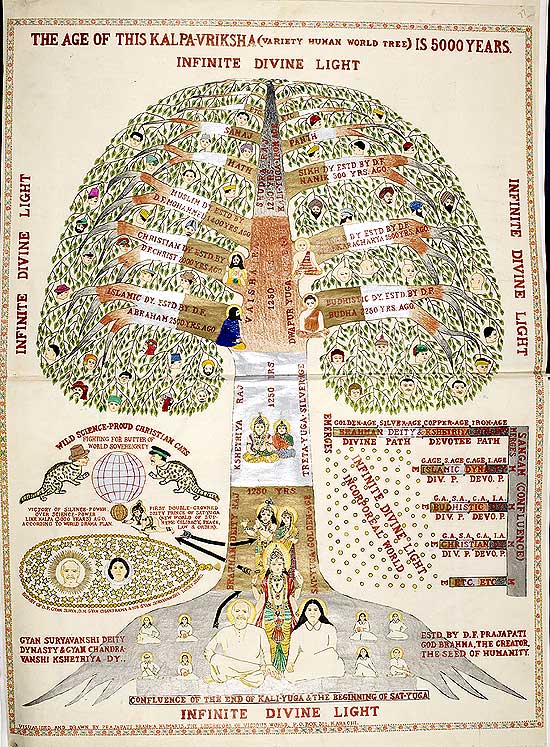 THE AGE OF THIS KALPA-VRIKSHA (VARIETY HUMAN WORLD TREE) IS 5000 YEARS.
INFINITE DIVINE LIGHT
INFINITE DIVINE LIGHT
INFINITE DIVINE LIGHT
SAMAJ
PANTH
MATH
SHUDRA RAJ
1250 YRS
SIKH DY. ESTD BY D.F.
NANIK 500 YRS. AGO.
MUSLIM DY. ESTD BY
D.F. MOHAMMED 1400 YRS. AGO.
DY ESTD BY D.F.
1500 YRS. AGO
CHRISTIAN DY. ESTD BY
D.F. CHRIST 2000 YRS. AGO.
VAISH
1250 YRS
DWAPUR YUGA
ISLAMIC DY. ESTD BY D.F.
ABRAHAM 2500 YRS. AGO.
BUDHISTIC DY. ESTD BY D.F.
BUDHA 2250 YRS. AGO.
KSHETRIYA RAJ
1250 YRS
TRETA-YUGA-SILVER AGE
WILD SCIENCE-PROUD CHRISTIAN CATS
FIGHTING FOR BUTTER OF
WORLD SOVEREIGNTY
VICTORY OF SILENCE-POWER
OVER SCIENCE-POWER
LIKE KALPA (5000 YEARS) AGO,
ACCORDING TO WORLD DRAMA PLAN.
FIRST DOUBLE-CROWNED
DEITY PRINCE OF SATYUGA
NEW WORLD OF SUPREME
CELIBACY, PEACE,
LAW & ORDER.
1250 YRS
GOLDEN-AGE, SILVER-AGE, COPPER-AGE, IRON-AGE
EMERGES
BRAHMAN DEITY & KSHETRIYA
DIVINE PATH DEVOTEE PATH
MERGES
SANGAM (CONFLUENCE)
G.AGE, S.AGE, C.AGE, I.AGE
E ISLAMIC DYNASTY M
DIV. P. DEVO. P.
G.A., S.A., C.A., I.A.
E BUDHISTIC DY. M
DIV. P. DEVO. P.
G.A., S.A., C.A., I.A.
E CHRISTIAN DY. M
DIV. P. DEVO. P.
E ETC. ETC. M
INFINITE DIVINE LIGHT
INCORPOREAL WORLD
GYAN SURYAVANSHI DEITY
DYNASTY & GYAN CHANDRA-
VANSHI KSHETRIYA DY..
ESTD. BY D.F. PRAJAPATI
GOD BRAHMA, THE CREATOR,
THE SEED OF HUMANITY.
CONFLUENCE OF THE END OF KALI-YUGA & THE BEGINNING OF SAT-YUGA
INFINITE DIVINE LIGHT
VISUALISED AND DRAWN BY PRAJAPATI BRAHMA KUMARIS, THE LIBERATORS OF VICIOUS WORLD, P.O. BOX 381, KARACHI.